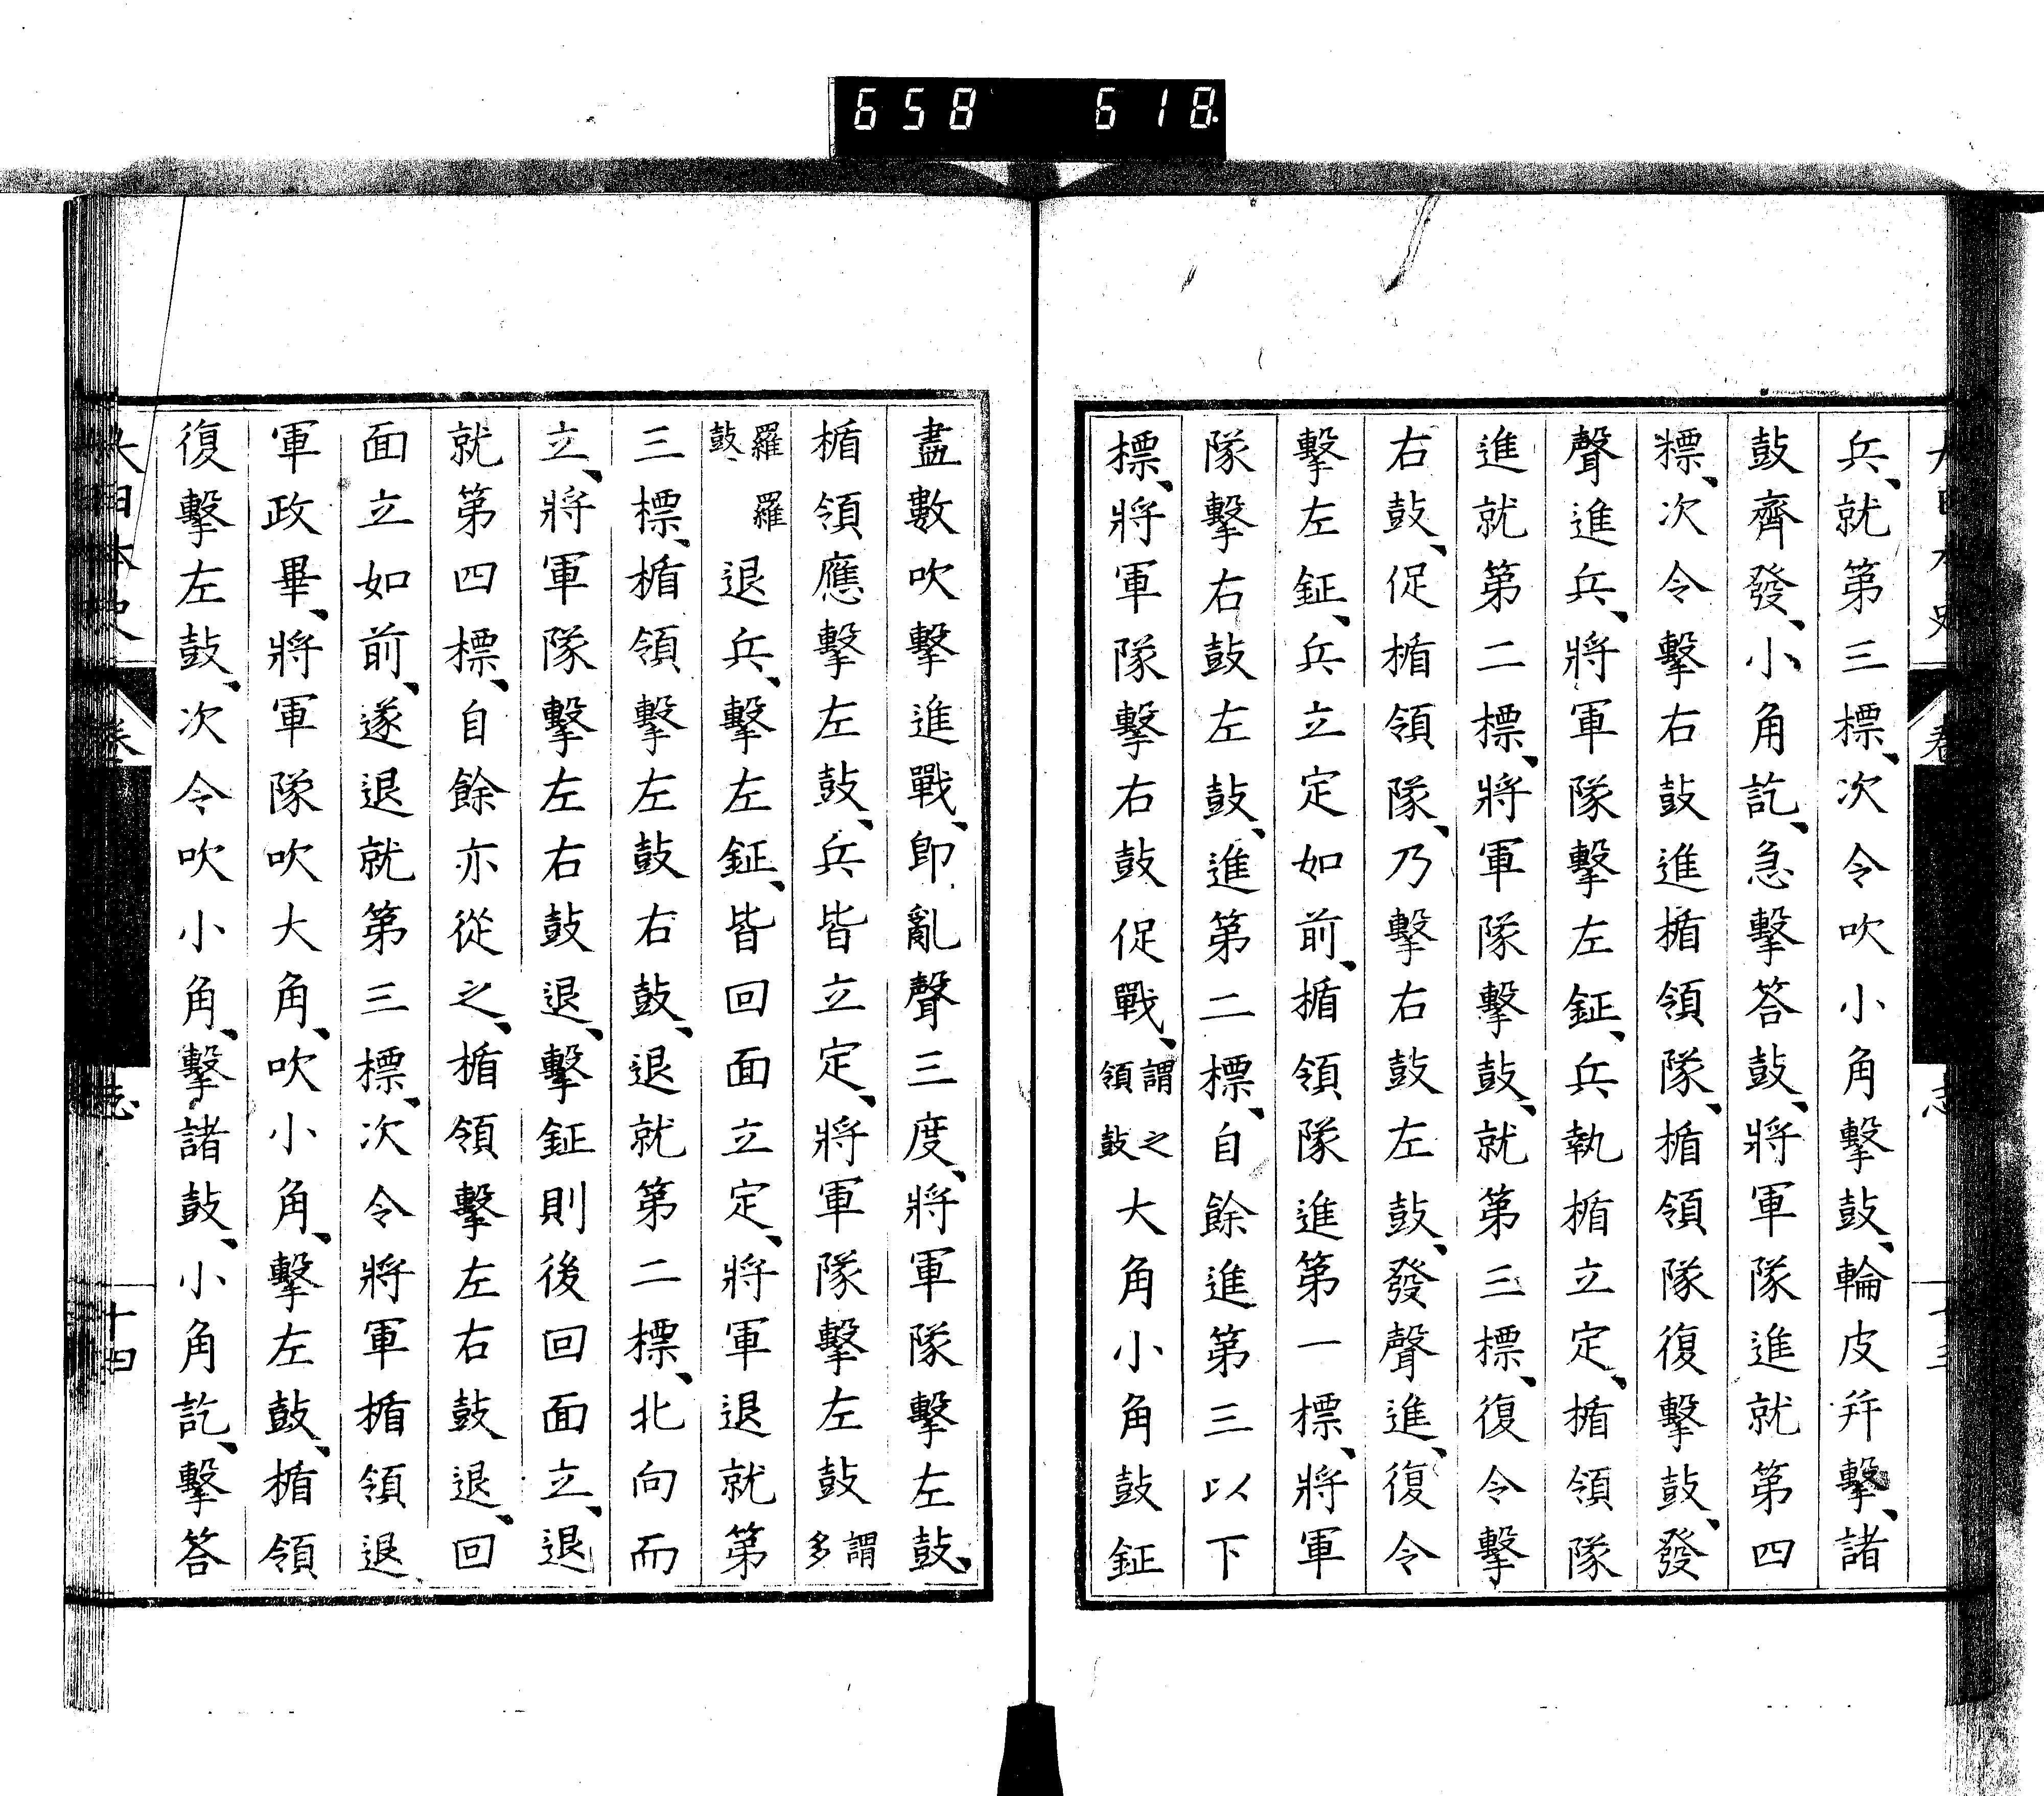 658 618
兵、就第三標、次令吹小角擊鼓、輪皮并擊、諸
鼓齊發、小角訖、急擊答鼓、將軍隊進就第四
標、次令擊右鼓進楯領隊、楯領隊復擊鼓、發
聲進兵、將軍隊擊左鉦、兵執楯立定、楯領隊
進就第二標、將軍隊擊鼓、就第三標、復令擊
右鼓、促楯領隊、乃擊右鼓左鼓、發聲進、復令
擊左鉦、兵立定如前、楯領隊進第一標、將軍
隊擊右鼓左鼓、進第二標、自餘進第三以下
標、將軍隊擊右鼓促戰、謂之領鼓大角小角鼓鉦
盡數吹擊進戰、卽亂聲三度、將軍隊擊左鼓、
楯領應擊左鼓、兵皆立定、將軍隊擊左鼓謂多
羅羅鼓、退兵、擊左鉦、皆回面立定、將軍退就第
三標、楯領擊左鼓右鼓、退就第二標、北向而
立、將軍隊擊左右鼓退、擊鉦則後回面立、退
就第四標、自餘亦從之、楯領擊左右鼓退、回
面立如前、遂退就第三標、次令將軍楯領退
軍政畢、將軍隊吹大角、吹小角、擊左鼓、楯領
復擊左鼓、次令吹小角、擊諸鼓、小角訖、擊答
大日本史
志
十四